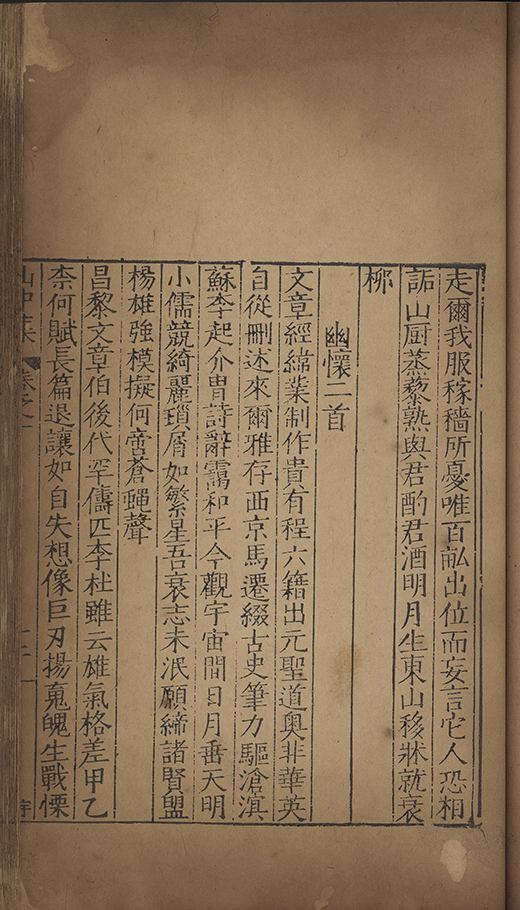 走爾我服稼穡所憂唯百畝出位而妄言它人恐相
詬山厨蒸藜熟與君酌君酒明月生東山移牀就衰
柳
幽懷二首
文章經緯業制作貴有程六籍出元聖道奧非華英
自從刪述來爾雅存西京馬遷綴古史筆力驅滄溟
蘇李起介胄詩辭靄和平今觀宇宙間日月垂天明
小儒競綺麗瑣屑如繁星吾衰志未泯願締諸賢盟
楊雄強模擬何啻蒼蠅聲
昌黎文章伯後代罕儔匹李杜雖云雄氣格差甲乙
柰何賦長篇退讓如自失想像巨刃揚䰟魄生戰慄